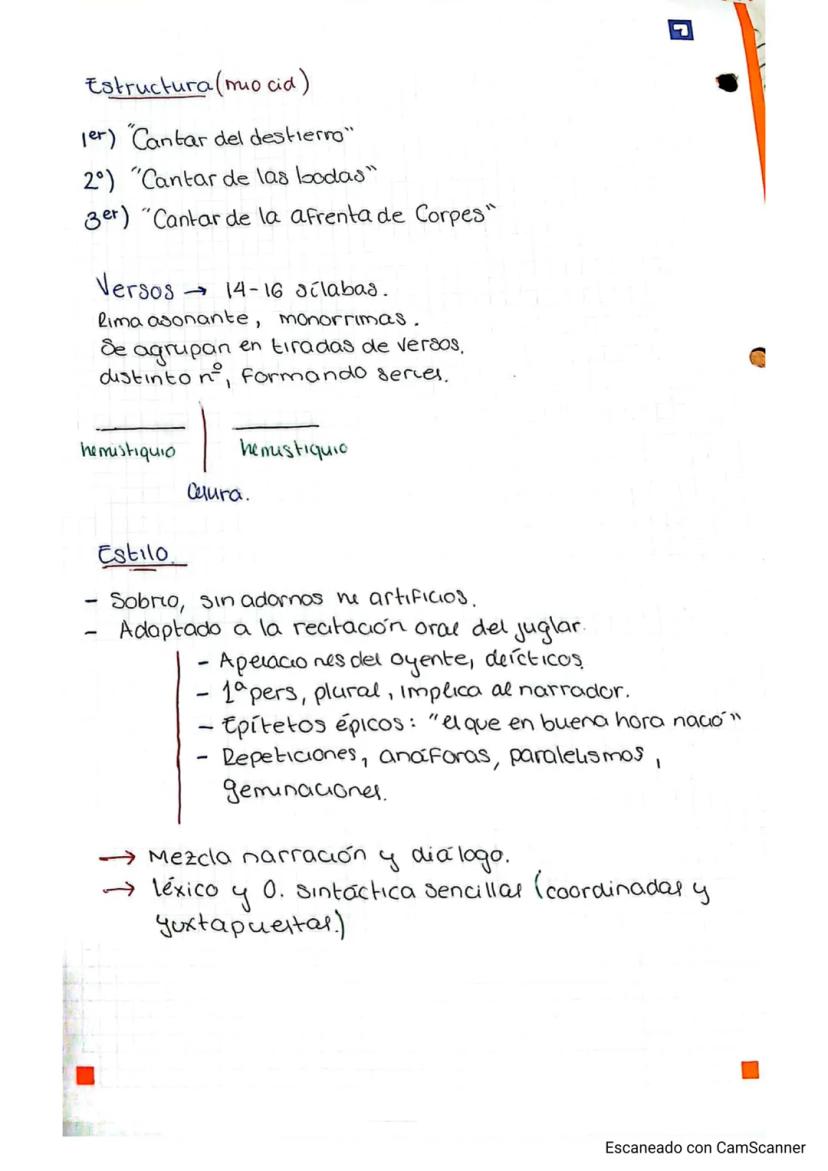 Estructura (mio cid)
1er) "Cantar del destierro"
2º) "Cantar de las bodas"
3er) "Cantar de la afrenta de Corpes"
Versos → 14-16 sílabas.
Rima asonante, monorrimas.
Se agrupan en tiradas de versos,
distinto nº, formando series.
hemistiquio hemistiquio
Cesura.
Estilo.
- Sobrio, sin adornos ni artificios.
- Adaptado a la recitación oral del juglar.
- Apelaciones del oyente, deícticos
- 1ª pers, plural, implica al narrador.
- Epítetos épicos: "el que en buena hora nació"
- Repeticiones, anáforas, paralelismos,
geminaciones.
→ Mezcla narración y diálogo.
→ léxico y O. sintáctica sencillas (coordinadas y
yuxtapuestas.)
Escaneado con CamScanner